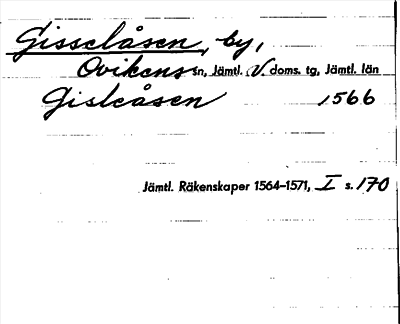 Gisselåsen, by,
Ovikens sn, Jämtl. V. doms. tg, Jämtl. län
Gisleåsen 1566
Jämtl. Räkenskaper 1564–1571, I s. 170